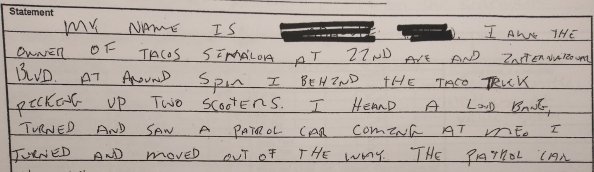 Statement
MY NAME IS I AME THE
OWNER OF TACOS SINALOA AT 22ND AVE AND INTERNATIONAL
BLVD. AT AROUND 5PM I BEHIND THE TACO TRUCK
PICKING UP TWO SCOOTERS. I HEARD A LOUD BANG,
TURNED AND SAW A PATROL CAR COMING AT ME. I
TURNED AND MOVED OUT OF THE WAY. THE PATROL CAR